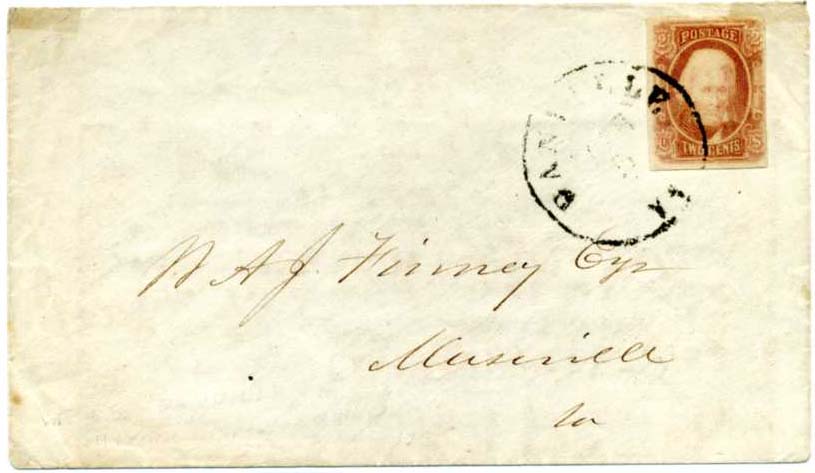 POSTAGE
TWO CENTS
DANVILLE VA
W A J. Finney Esqr
Museville
Va